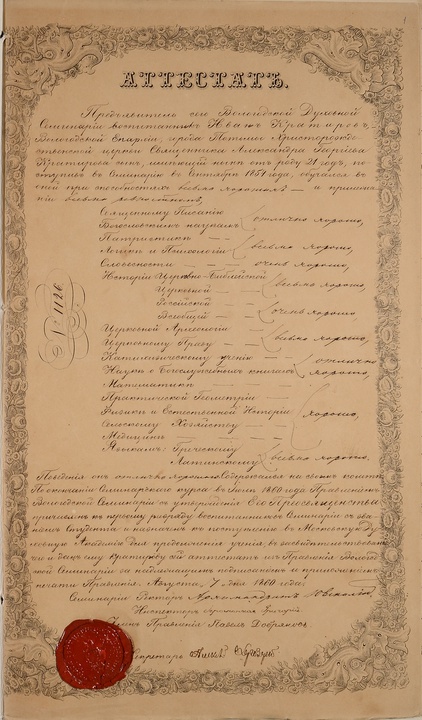 АТТЕСТАТЪ.
Предъявитель сего Вологодской Духовной
Семинаріи воспитанникъ Иванъ Кратировъ,
Вологодской Епархіи, города Тотьмы Христорождественской
церкви Священника Александра
Кратирова сынъ, имѣющій нынѣ отъ роду 21 годъ, поступивъ
въ Семинарію въ Сентябрѣ 1854 года, обучался въ
оной при способностяхъ весьма хорошихъ — и прилежаніи
весьма ревностномъ,
Священному Писанію
Богословскимъ наукамъ отлично хорошо,
Патристикѣ
Логикѣ и Психологіи весьма хорошо,
Словесности — очень хорошо,
Исторіи Церковно-Библейской
Церковной весьма хорошо,
Россійской
Всеобщей очень хорошо
Церковной Археологіи
Церковному Праву весьма хорошо,
Катихизическому ученію отлично
Наукѣ о Богослужебныхъ книгахъ хорошо,
Математикѣ
Практической Геометріи
Физикѣ и Естественной Исторіи хорошо,
Сельскому Хозяйству
Медицинѣ
Языкамъ: Греческому
Латинскому весьма хорошо,
Поведенія онъ отлично хорошаго. Содержался на своемъ коштѣ
По окончаніи Семинарскаго курса въ Іюлѣ 1860 года Правленіемъ
Вологодской Семинаріи съ утвержденія Его Преосвященства
причисленъ къ первому разряду воспитанниковъ Семинаріи съ званіемъ
Студента и назначенъ къ поступленію въ Московскую Духовную
Академію для продолженія ученія, въ засвидѣтельствованіе
чего и данъ ему Кратирову сей аттестатъ изъ Правленія Вологодской
Семинаріи за надлежащимъ подписаніемъ и приложеніемъ
печати Правленія. Августа, 7 дня 1860 года.
Семинаріи Ректоръ Архимандритъ
Инспекторъ
Членъ Правленія Павелъ Добряковъ
Секретарь
№ 1126